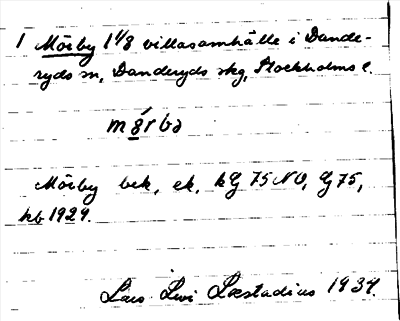 1 Mörby 1 1/8 villasamhälle i Dande-
ryds sn, Danderyds skg, Stockholms l.
mǿrbə
Mörby bek, ek, kG 75 NO, G 75,
hb 1929.
Lars Levi Læstadius 1934.